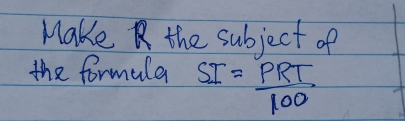 Make R the subject of
the formula SI = PRT
100